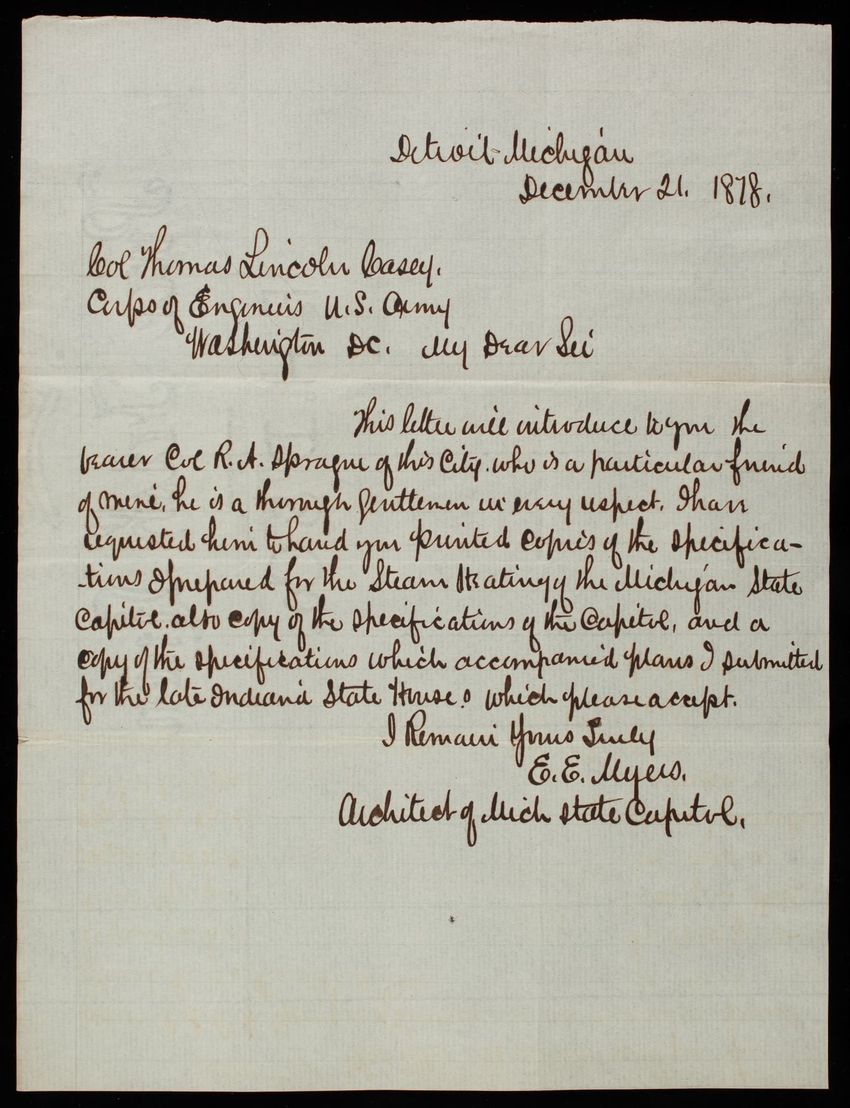 Detroit Michigan
December 21. 1878.
Col Thomas Lincoln Casey.
Corps of Engineers U.S. Army
Washington DC. My Dear Sir
This letter will introduce to you the
bearer Col R. A. Sprague of this City. who is a particular friend
of mine, he is a thorough Gentlemen in every respect. I have
requested him to hand you printed copies of the specifica-
tions I prepared for the Steam Heating of the Michigan State
Capitol. also copy of the specifications of the Capitol, and a
copy of the specifications which accompanied plans I submitted
for the late Indiana State House. which please accept.
I Remain Yours Truly
E. E. Myers.
Architect of Mich State Capitol.